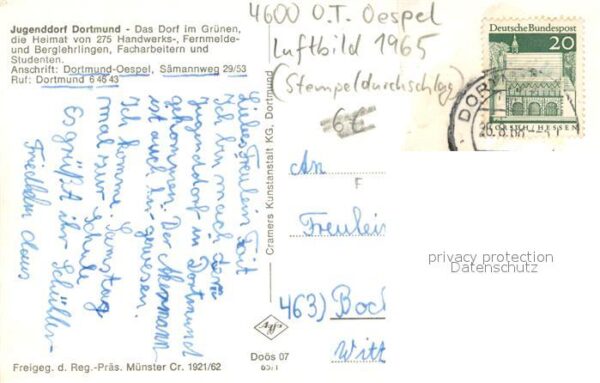 Jugenddorf Dortmund - Das Dorf im Grünen,
die Heimat von 275 Handwerks-, Fernmelde-
und Berglehrlingen, Facharbeitern und
Studenten.
Anschrift: Dortmund-Oespel, Sämannweg 29/53
Ruf: Dortmund 6 46 43
4600 O.T. Oespel
Luftbild 1965
(Stempeldurchschlag)
6€
Deutsche Bundespost
20
LORSCH/HESSEN
DORTM
Liebes Freulein
Ich bin nach dem
Jugenddorf in Dortmund
gekommen. Der
ist auch in gewesen.
Ich komme Samstag
mal zur Schule
Es grüßt ihr Schühler
Friedhelm Claus
Cramers Kunstanstalt KG, Dortmund
An
F
Freulein
463) Boch
Witt
privacy protection
Datenschutz
Agfa
Doös 07
Freigeg. d. Reg.-Präs. Münster Cr. 1921/62